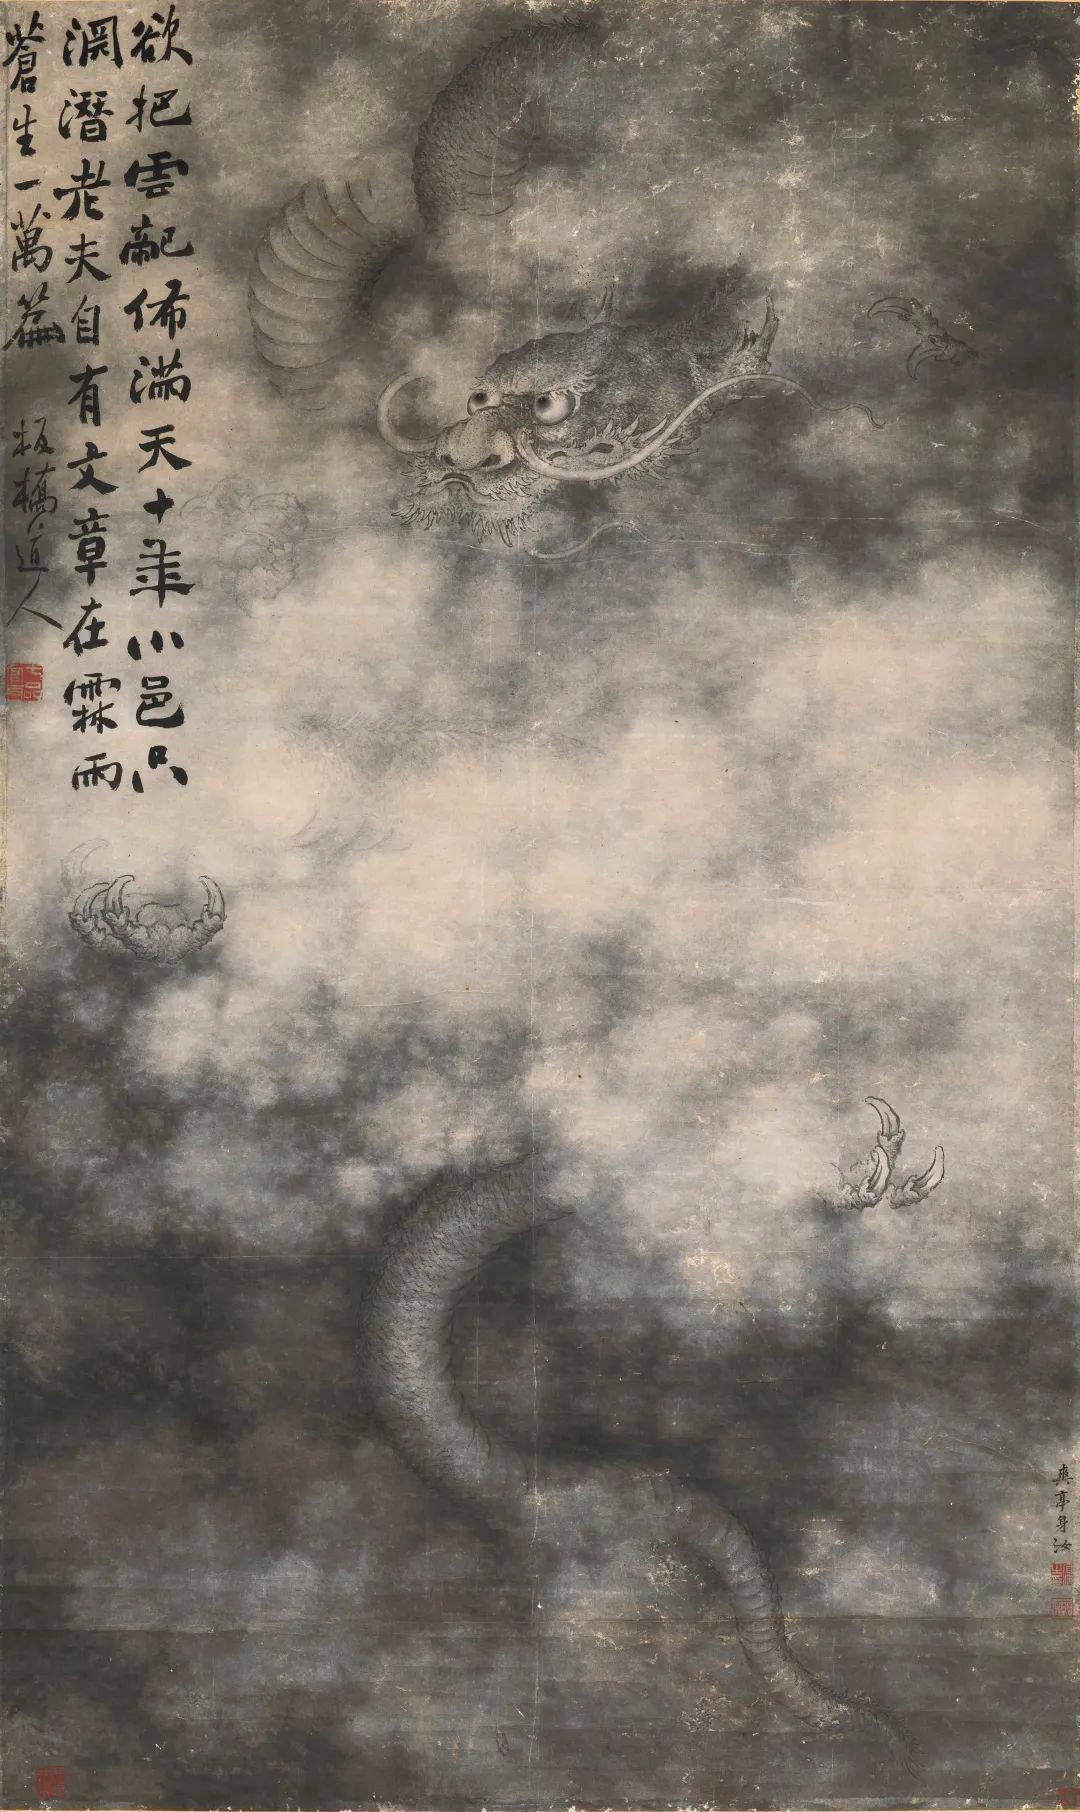 欲把雲龍佈滿天十年小邑只
淵潛老夫自有文章在霖雨
蒼生一萬篇
板橋道人
七品
爽亭身汝